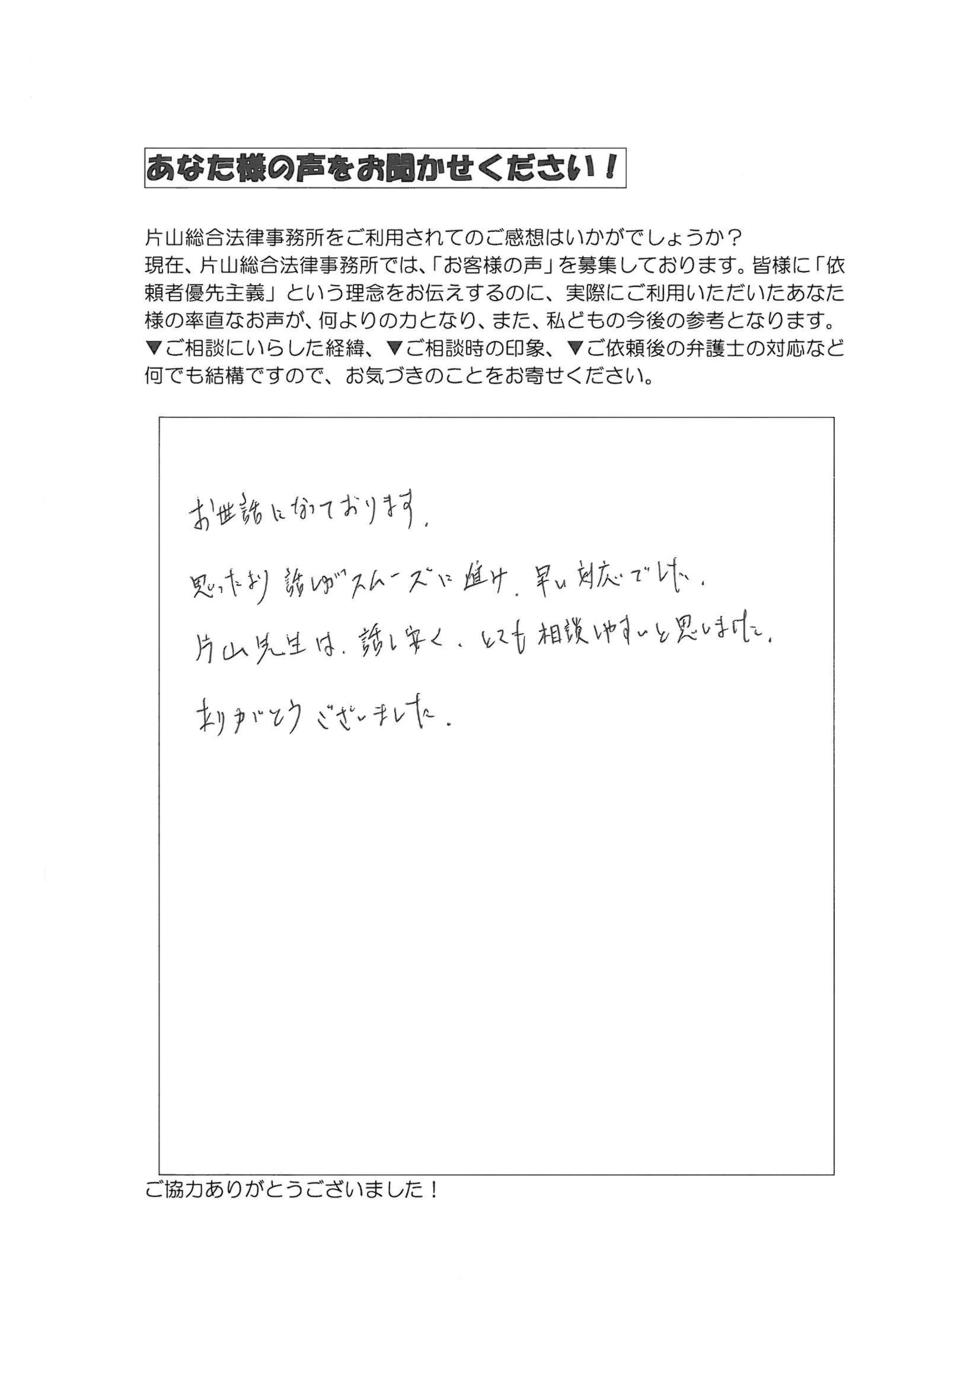 あなた様の声をお聞かせください!
片山総合法律事務所をご利用されてのご感想はいかがでしょうか?
現在、片山総合法律事務所では、「お客様の声」を募集しております。皆様に「依
頼者優先主義」という理念をお伝えするのに、実際にご利用いただいたあなた
様の率直なお声が、何よりの力となり、また、私どもの今後の参考となります。
▼ご相談にいらした経緯、▼ご相談時の印象、▼ご依頼後の弁護士の対応など
何でも結構ですので、お気づきのことをお寄せください。
お世話になっております。
思ったより話しがスムーズに進け、早い対応でした。
片山先生は、話し安く、とても相談しやすいと思いました。
ありがとうございました。
ご協力ありがとうございました!